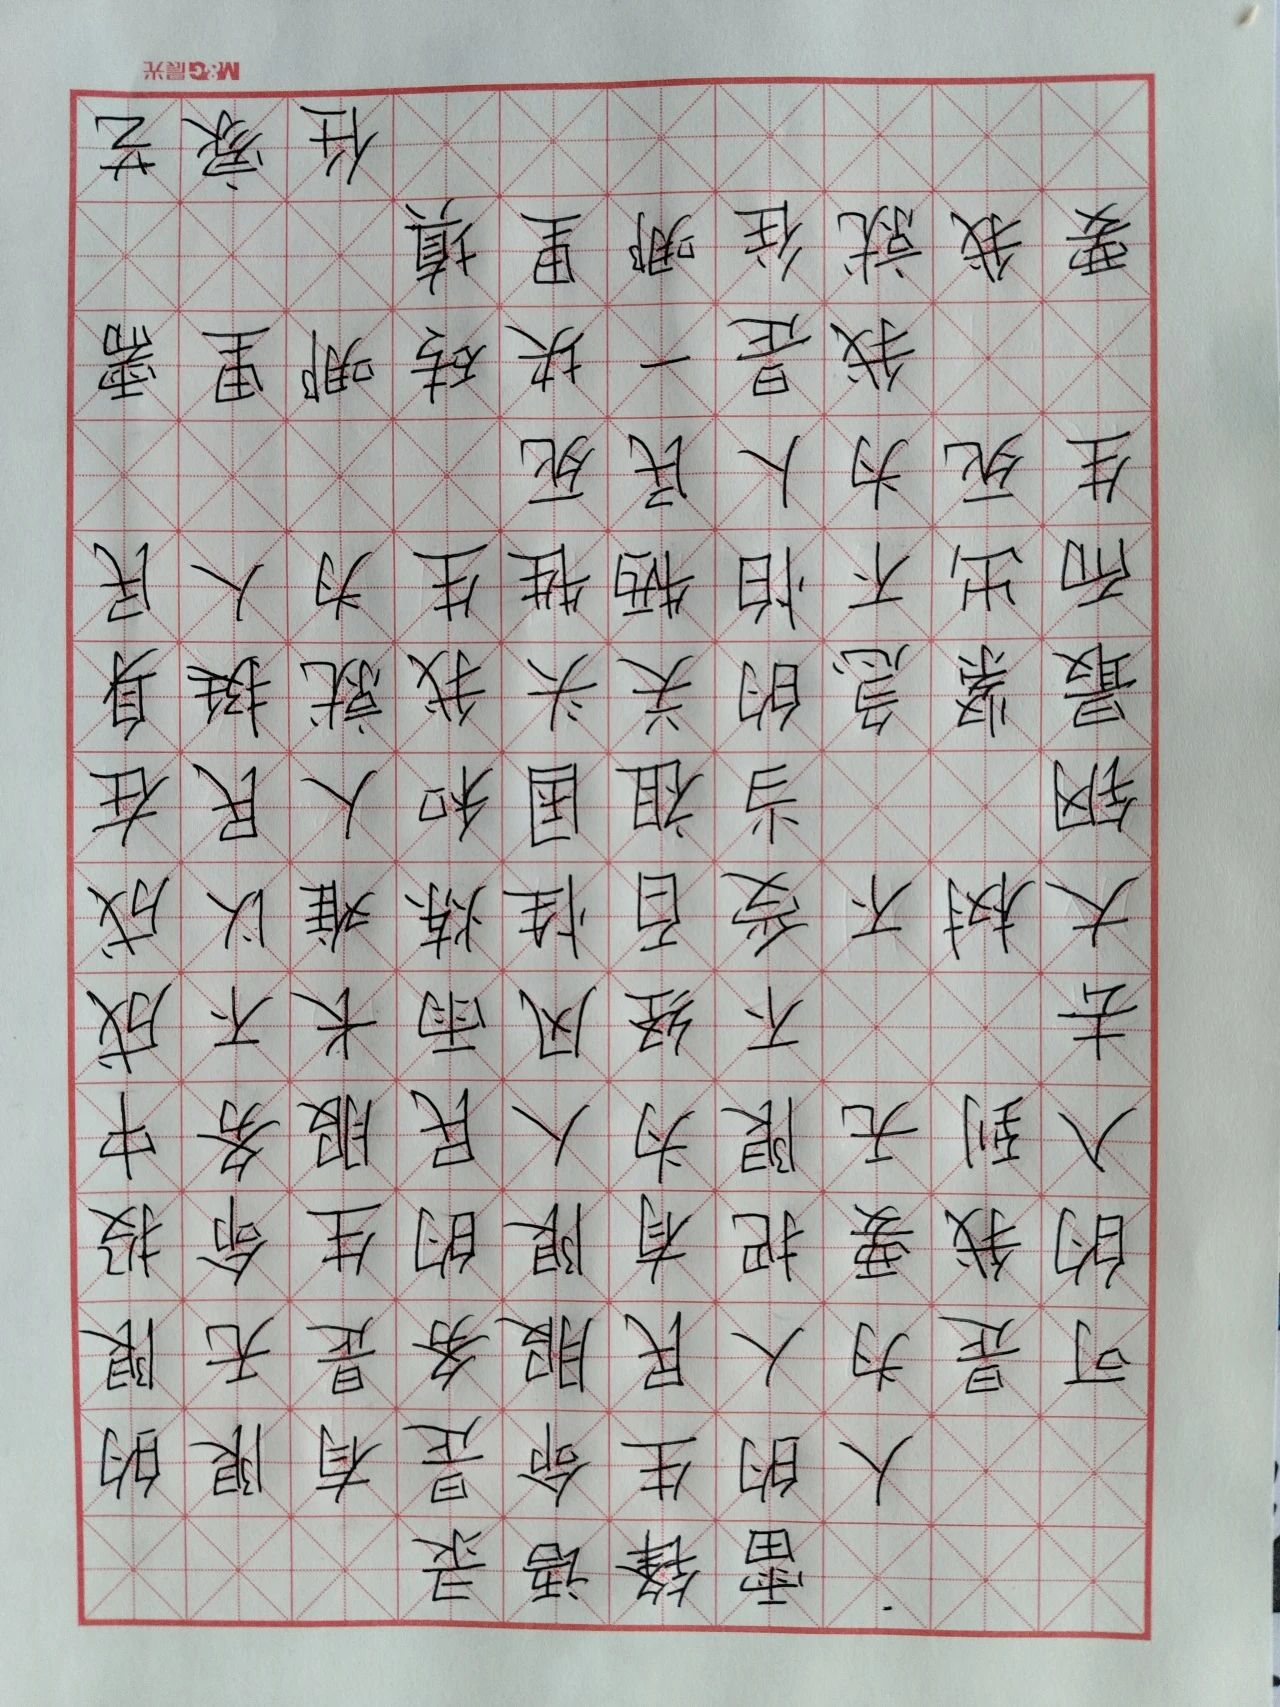 雷锋语录
人的生命是有限的
可是为人民服务是无限
的我要把有限的生命投
入到无限为人民服务中
去 不经风雨长不成
大树不受百性炼难以成
钢 当祖国和人民在
最紧急的关头我就挺身
而出不怕牺牲生为人民
生死为人民死
我是一块砖哪里需
要我就往哪里填
任家艺
M&G晨光